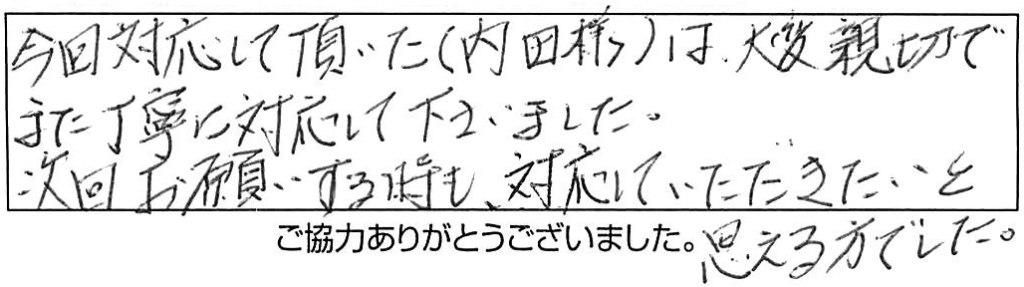 今回対応して頂いた(内田様)は、大変親切で
また丁寧に対応して下さいました。
次回お願いする時も、対応していただきたいと
思える方でした。
ご協力ありがとうございました。